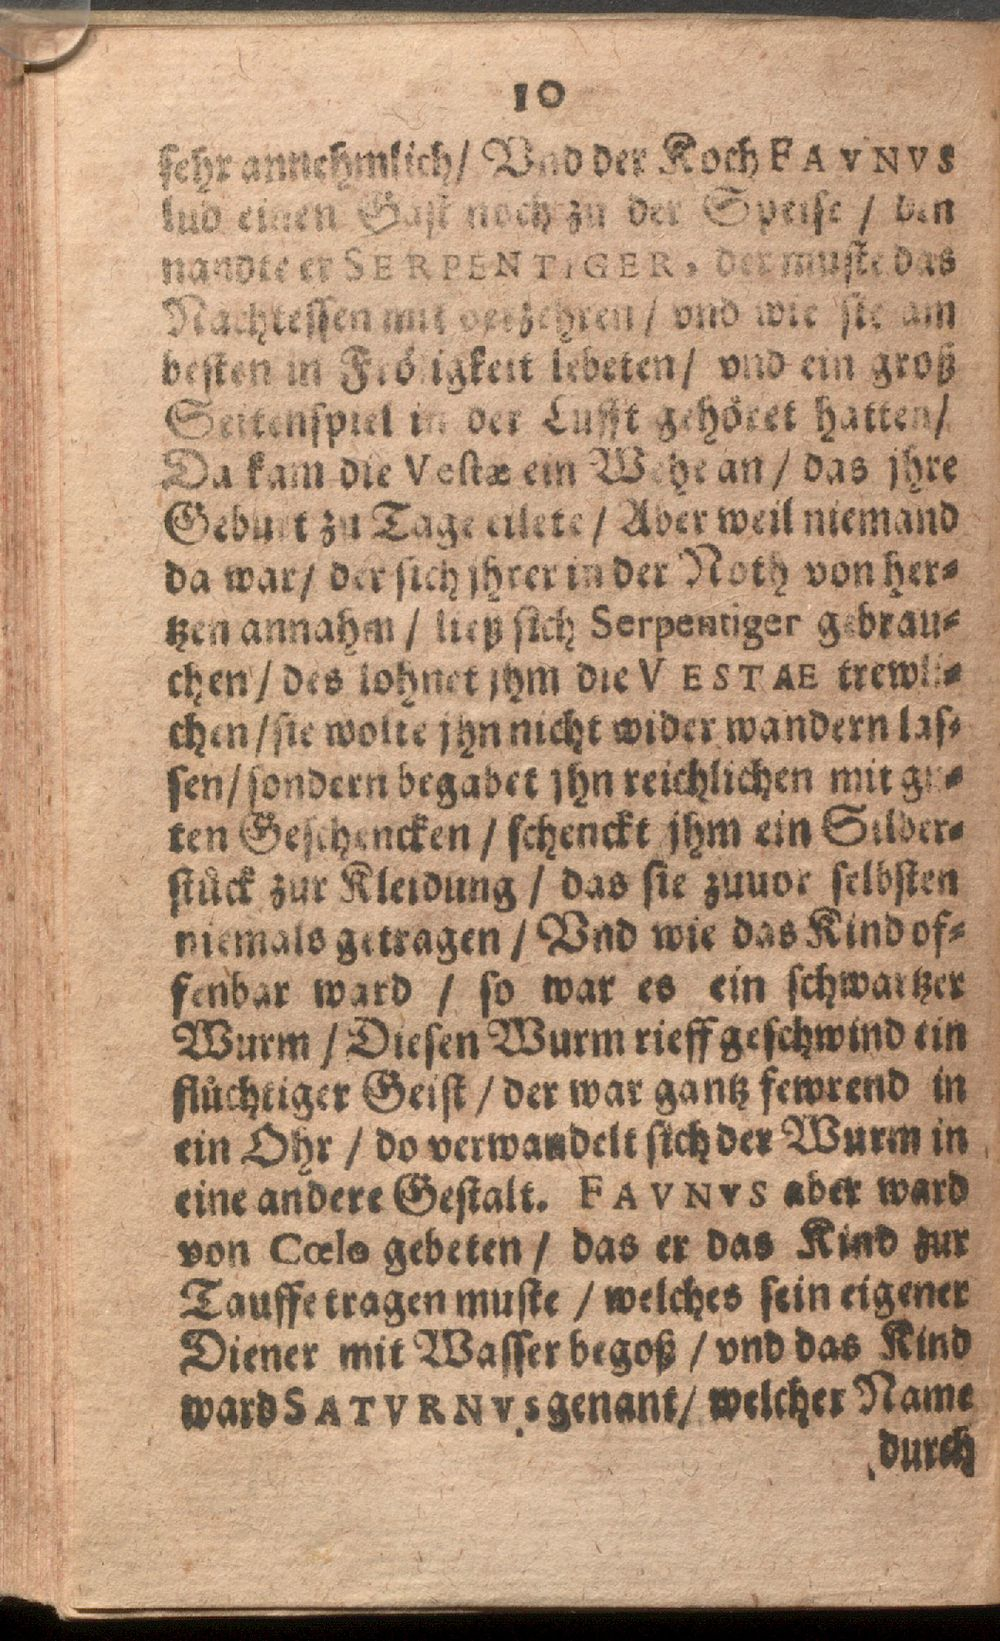 10
sehr annehmlich/ Vnd der Koch FAVNVS
lud einen Gast noch zu der Speise / den
nandte er SERPENTIGER, der muste das
Nachtessen mit verzehren / vnd wie sie am
besten in Frôligkeit lebeten / vnd ein groß
Seitenspiel in der Lufft gehôret hatten /
Da kam die Vestæ ein Wehe an / das jhre
Geburt zu Tage eilete / Aber weil niemand
da war / der sich jhrer in der Noth von her⸗
tzen annahm / ließ sich Serpentiger gebrau⸗
chen / des lohnet jhm die VESTAE trewli⸗
chen / sie wolte jhn nicht wider wandern las⸗
sen / sondern begabet jhn reichlichen mit gu⸗
ten Geschencken / schenckt jhm ein Silber⸗
stůck zur Kleidung / das sie zuuor selbsten
niemals getragen / Vnd wie das Kind of⸗
fenbar ward / so war es ein schwartzer
Wurm / Diesen Wurm rieff geschwind ein
flůchtiger Geist / der war gantz fewrend in
ein Ohr / do verwandelt sich der Wurm in
eine andere Gestalt. FAVNVS aber ward
von Cœlo gebeten / das er das Kind zur
Tauffe tragen muste / welches sein eigener
Diener mit Wasser begoß / vnd das Kind
ward SATVRNVS genant / welcher Name
durch